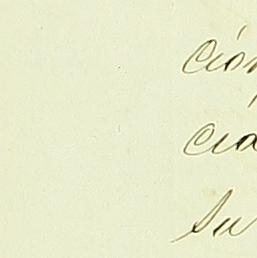 ción
cia
su